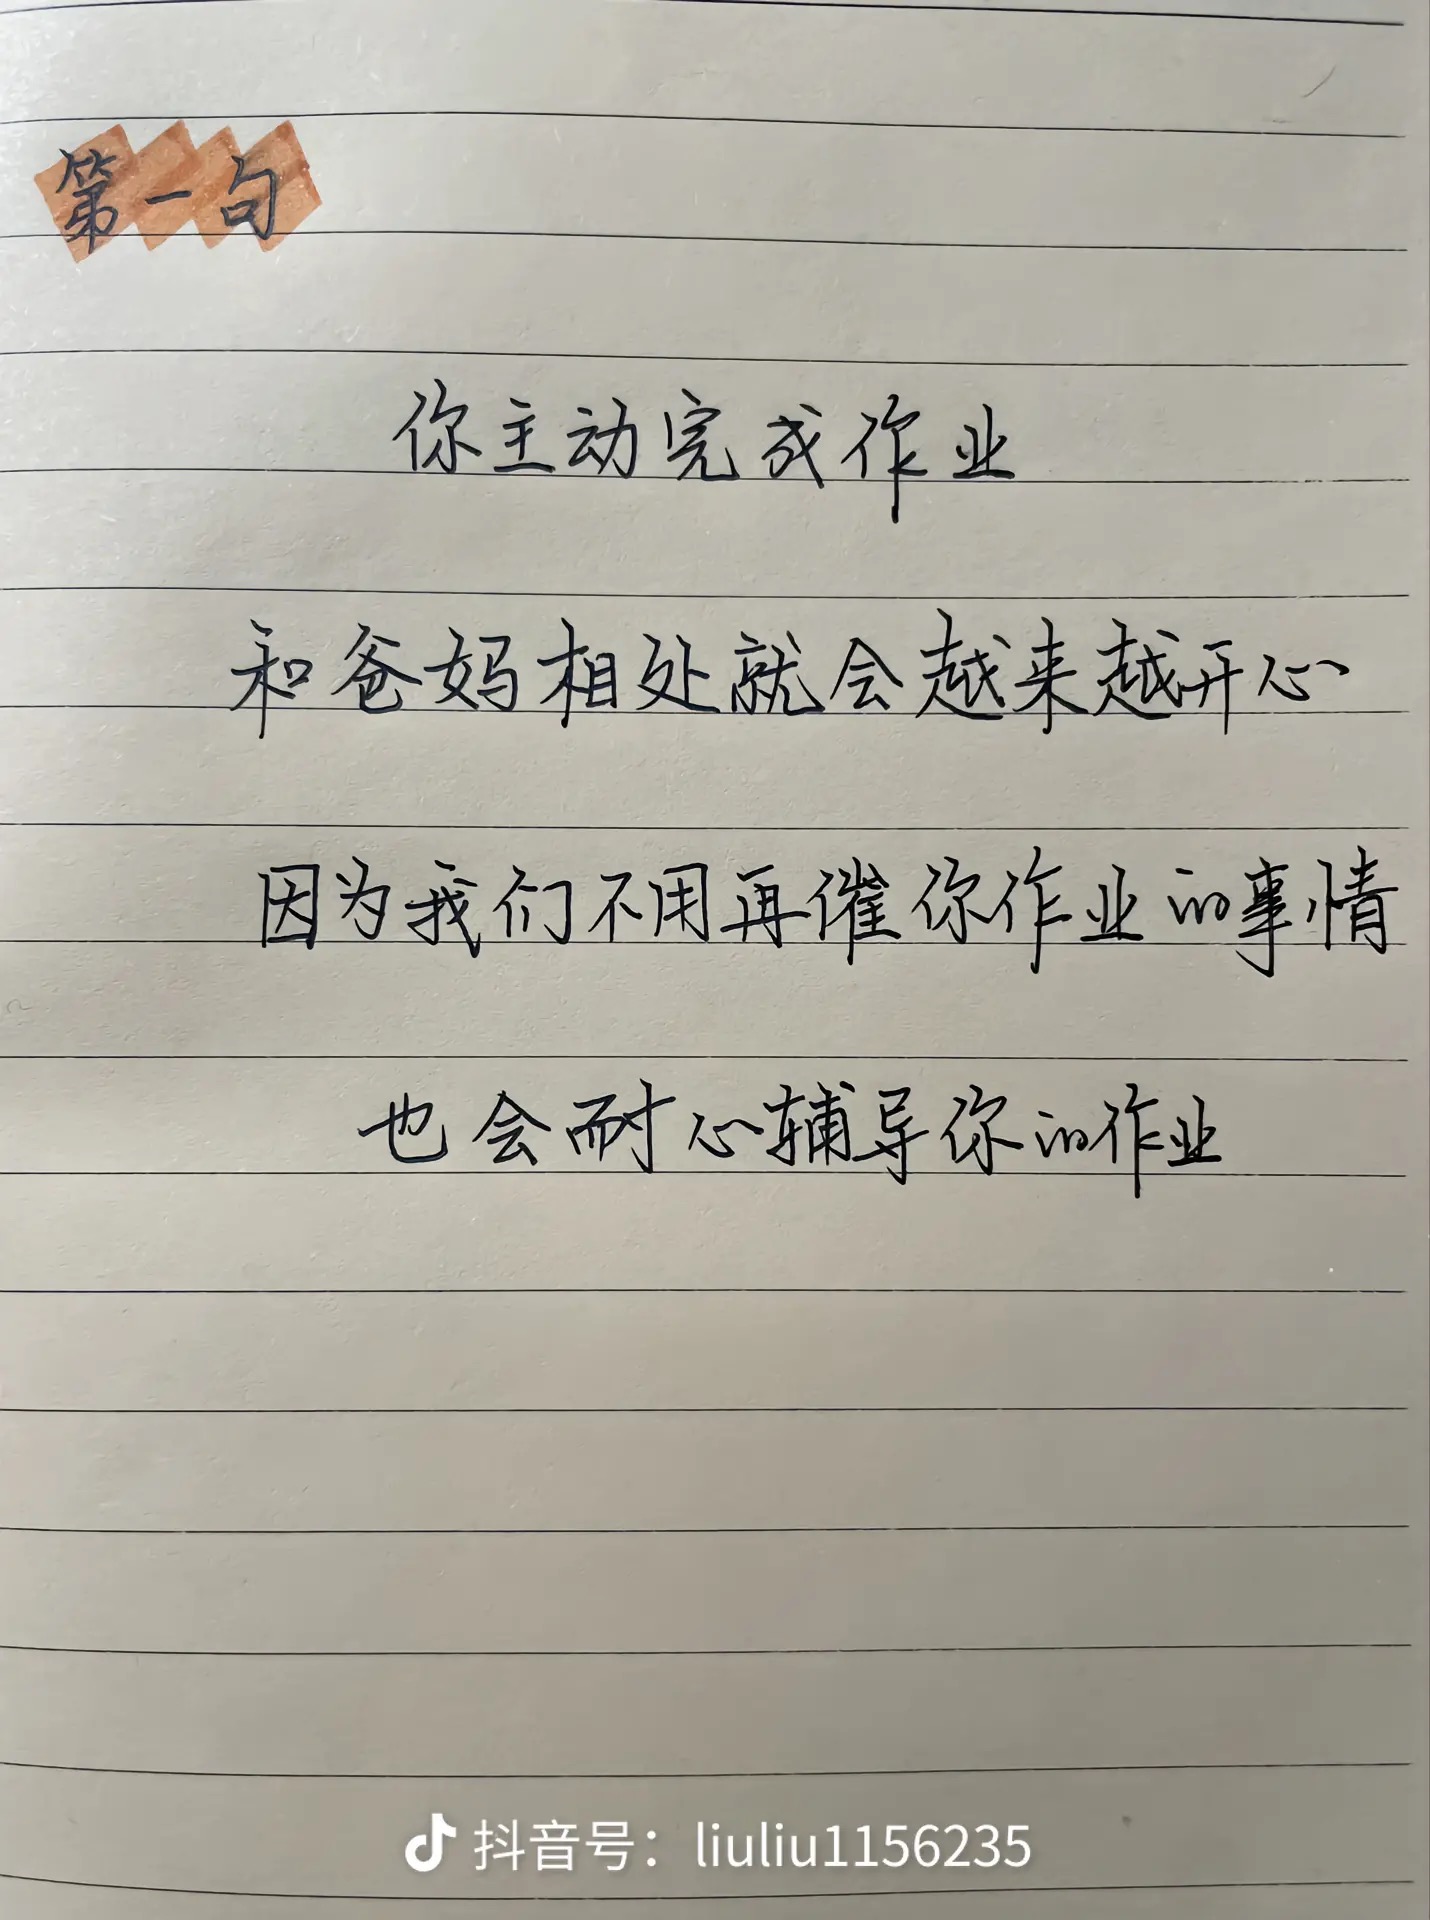 第一句
你主动完成作业
和爸妈相处就会越来越开心
因为我们不用再催你作业的事情
也会耐心辅导你的作业
抖音号：liuliu1156235